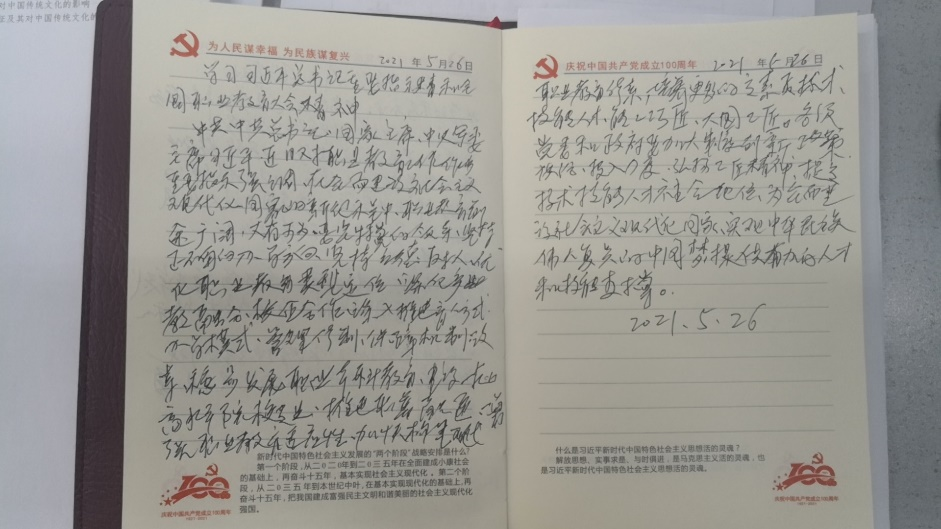 对中国传统文化的影响
及其对中国传统文化的
为人民谋幸福 为民族谋复兴
2021 年 5 月 26 日
学习习近平总书记重要指示精神和全
国职业教育大会精神
中共中央总书记、国家主席、中央军委
主席习近平近日对职业教育工作作出
重要指示强调,在全面建设社会主义
现代化国家新征程中,职业教育前
途广阔、大有可为。要坚持党的领导,坚持
正确办学方向,坚持立德树人,优
化职业教育类型定位,深化产教
融合、校企合作,深入推进育人方式、
办学模式、管理体制、保障机制改
革,稳步发展职业本科教育,建设一批
高水平院校和专业,推动职普融通,增
强职业教育适应性,加快构建现代
新时代中国特色社会主义发展的“两个阶段”战略安排是什么?
第一个阶段,从二〇二〇年到二〇三五年在全面建成小康社会
的基础上,再奋斗十五年,基本实现社会主义现代化。第二个阶
段,从二〇三五年到本世纪中叶,在基本实现现代化的基础上,再
奋斗十五年,把我国建成富强民主文明和谐美丽的社会主义现代化
强国。
100
庆祝中国共产党成立100周年
1921-2021
庆祝中国共产党成立100周年
2021 年 5 月 26 日
职业教育体系,培养更多高素质技术
技能人才、能工巧匠、大国工匠。各级
党委和政府要加大制度创新、政策
供给、投入力度,弘扬工匠精神,提高
技术技能人才社会地位,为全面建
设社会主义现代化国家、实现中华民族
伟大复兴的中国梦提供有力的人才
和技能支撑。
2021.5.26
什么是习近平新时代中国特色社会主义思想活的灵魂?
解放思想、实事求是、与时俱进,是马克思主义活的灵魂,也
是习近平新时代中国特色社会主义思想活的灵魂。
100
庆祝中国共产党成立100周年
1921-2021